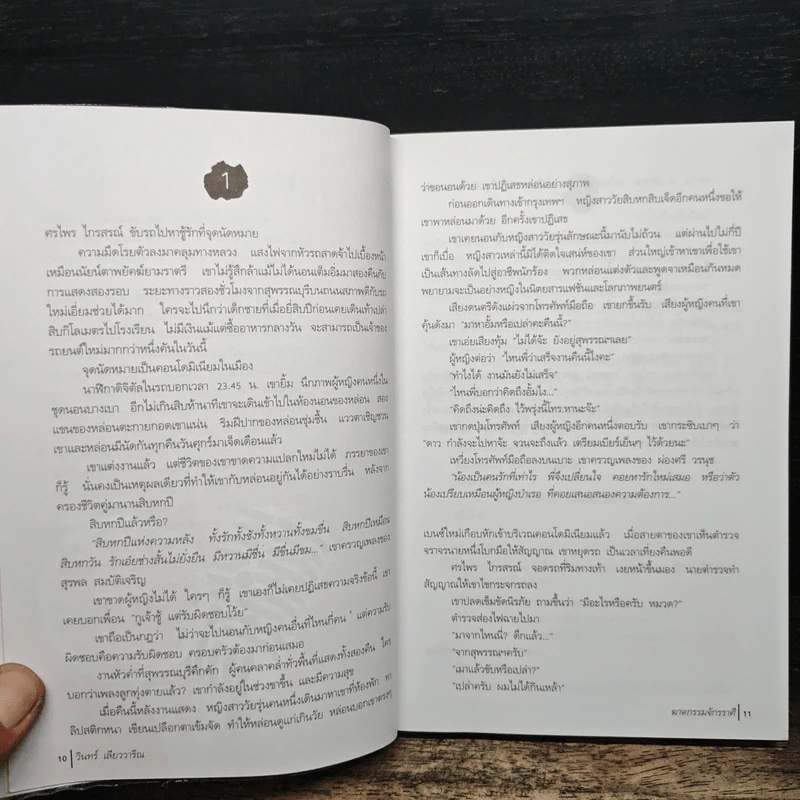 1
ศรไพร ไกรสรณ์ ขับรถไปหาชู้รักที่จุดนัดหมาย
ความมืดโรยตัวลงมาคลุมทางหลวง แสงไฟจากหัวรถสาดจ้าไปเบื้องหน้า
เหมือนนัยน์ตาพยัคฆ์ยามราตรี เขาไม่รู้สึกล้าแม้ไม่ได้นอนเต็มอิ่มมาสองคืนกับ
การแสดงสองรอบ ระยะทางราวสองชั่วโมงจากสุพรรณบุรีบนถนนสภาพดีกับรถ
ใหม่เอี่ยมช่วยได้มาก ใครจะไปนึกว่าเด็กชายที่เมื่อยี่สิบปีก่อนเคยเดินเท้าเปล่า
สิบกิโลเมตรไปโรงเรียน ไม่มีเงินแม้แต่ซื้ออาหารกลางวัน จะสามารถเป็นเจ้าของ
รถยนต์ใหม่มากกว่าหนึ่งคันในวันนี้
จุดนัดหมายเป็นคอนโดมิเนียมในเมือง
นาฬิกาดิจิตัลในรถบอกเวลา 23.45 น. เขายิ้ม นึกภาพผู้หญิงคนหนึ่งใน
ชุดนอนบางเบา อีกไม่เกินสิบห้านาทีเขาจะเดินเข้าไปในห้องนอนของหล่อน สอง
แขนของหล่อนตะกายกอดเขาแน่น ริมฝีปากของหล่อนชุ่มชื้น แววตาเชิญชวน
เขาและหล่อนมีนัดกันทุกคืนวันศุกร์มาเจ็ดเดือนแล้ว
เขาแต่งงานแล้ว แต่ชีวิตของเขาขาดความแปลกใหม่ไม่ได้ ภรรยาของเขา
ก็รู้ นั่นคงเป็นเหตุผลเดียวที่ทำให้เขากับหล่อนอยู่กันได้อย่างราบรื่น หลังจาก
ครองชีวิตคู่มานานสิบหกปี
สิบหกปีแล้วหรือ?
“สิบหกปีแห่งความหลัง ทั้งรักทั้งชังทั้งหวานทั้งขมขื่น สิบหกปีเหมือน
สิบหกวัน รักเอ๋ยช่างสั้นไม่ยั่งยืน มีหวานมีชื่น มีขื่นมีขม...” เขาครวญเพลงของ
สุรพล สมบัติเจริญ
เขาขาดผู้หญิงไม่ได้ ใครๆ ก็รู้ เขาเองก็ไม่เคยปฏิเสธความจริงข้อนี้ เขา
เคยบอกเพื่อน “กูเจ้าชู้ แต่รับผิดชอบโว้ย”
เขาถือเป็นกฎว่า ไม่ว่าจะไปนอนกับหญิงคนอื่นที่ไหนกี่คน แต่ความรับ
ผิดชอบคือความรับผิดชอบ ครอบครัวต้องมาก่อนเสมอ
งานหัวค่ำที่สุพรรณบุรีคึกคัก ผู้คนคลาคล่ำทั่วพื้นที่แสดงทั้งสองคืน ใคร
บอกว่าเพลงลูกทุ่งตายแล้ว? เขากำลังอยู่ในช่วงขาขึ้น และมีความสุข
เมื่อคืนนี้หลังงานแสดง หญิงสาววัยรุ่นคนหนึ่งเดินมาหาเขาที่ห้องพัก ทา
ลิปสติกหนา เขียนเปลือกตาเข้มจัด ทำให้หล่อนดูแก่เกินวัย หล่อนบอกเขาตรงๆ
10 วินทร์ เลียววาริณ
ว่าขอนอนด้วย เขาปฏิเสธหล่อนอย่างสุภาพ
ก่อนออกเดินทางเข้ากรุงเทพฯ หญิงสาววัยสิบหกสิบเจ็ดอีกคนหนึ่งขอให้
เขาพาหล่อนมาด้วย อีกครั้งเขาปฏิเสธ
เขาเคยนอนกับหญิงสาววัยรุ่นลักษณะนี้มานับไม่ถ้วน แต่ผ่านไปไม่กี่ปี
เขาก็เบื่อ หญิงสาวเหล่านี้มิได้ติดใจเสน่ห์ของเขา ส่วนใหญ่เข้าหาเขาเพื่อใช้เขา
เป็นเส้นทางลัดไปสู่อาชีพนักร้อง พวกหล่อนแต่งตัวและพูดจาเหมือนกันหมด
พยายามจะเป็นอย่างหญิงในนิตยสารแฟชั่นและโลกภาพยนตร์
เสียงดนตรีดังแผ่วจากโทรศัพท์มือถือ เขายกขึ้นรับ เสียงผู้หญิงคนที่เขา
คุ้นดังมา “มาหาอั้มหรือเปล่าคะคืนนี้?”
เขาเอ่ยเสียงทุ้ม “ไม่ได้จ้ะ ยังอยู่สุพรรณฯเลย”
ผู้หญิงต่อว่า “ไหนพี่ว่าเสร็จงานคืนนี้ไงคะ”
“ทำไงได้ งานมันยังไม่เสร็จ”
“ไหนพี่บอกว่าคิดถึงอั้มไง...”
“คิดถึงน่ะคิดถึง ไว้พรุ่งนี้โทร.หานะจ๊ะ”
เขากดปุ่มโทรศัพท์ ผู้หญิงอีกคนหนึ่งตอบรับ เขากระซิบเบาๆ ว่า
“ดาว กำลังจะไปหาจ้ะ จวนจะถึงแล้ว เตรียมเบียร์เย็นๆ ไว้ด้วยนะ”
เหวี่ยงโทรศัพท์มือถือลงบนเบาะ เขาครวญเพลงของ ผ่องศรี วรนุช
“น้องเป็นคนรักที่เท่าไร พี่จึงเปลี่ยนใจ คอยหารักใหม่เสมอ หรือว่าตัว
น้องเปรียบเหมือนผู้หญิงบำเรอ ที่คอยเสนอสนองความต้องการ...”
เบนซ์ใหม่เกือบหักเข้าบริเวณคอนโดมิเนียมแล้ว เมื่อสายตาของเขาเห็นตำรวจ
จราจรนายหนึ่งโบกมือให้สัญญาณ เขาหยุดรถ เป็นเวลาเที่ยงคืนพอดี
ศรไพร ไกรสรณ์ จอดรถที่ริมทางเท้า เงยหน้าขึ้นมอง นายตำรวจทำ
สัญญาณให้เขาไขกระจกรถลง
เขาปลดเข็มขัดนิรภัย ถามขึ้นว่า “มีอะไรหรือครับ หมวด?”
ตำรวจส่องไฟฉายไปมา
“มาจากไหนนี่? ดึกแล้ว...”
“จากสุพรรณฯครับ”
“เมาแล้วขับหรือเปล่า?”
“เปล่าครับ ผมไม่ได้กินเหล้า”
ฆาตกรรมจักรราศี 11